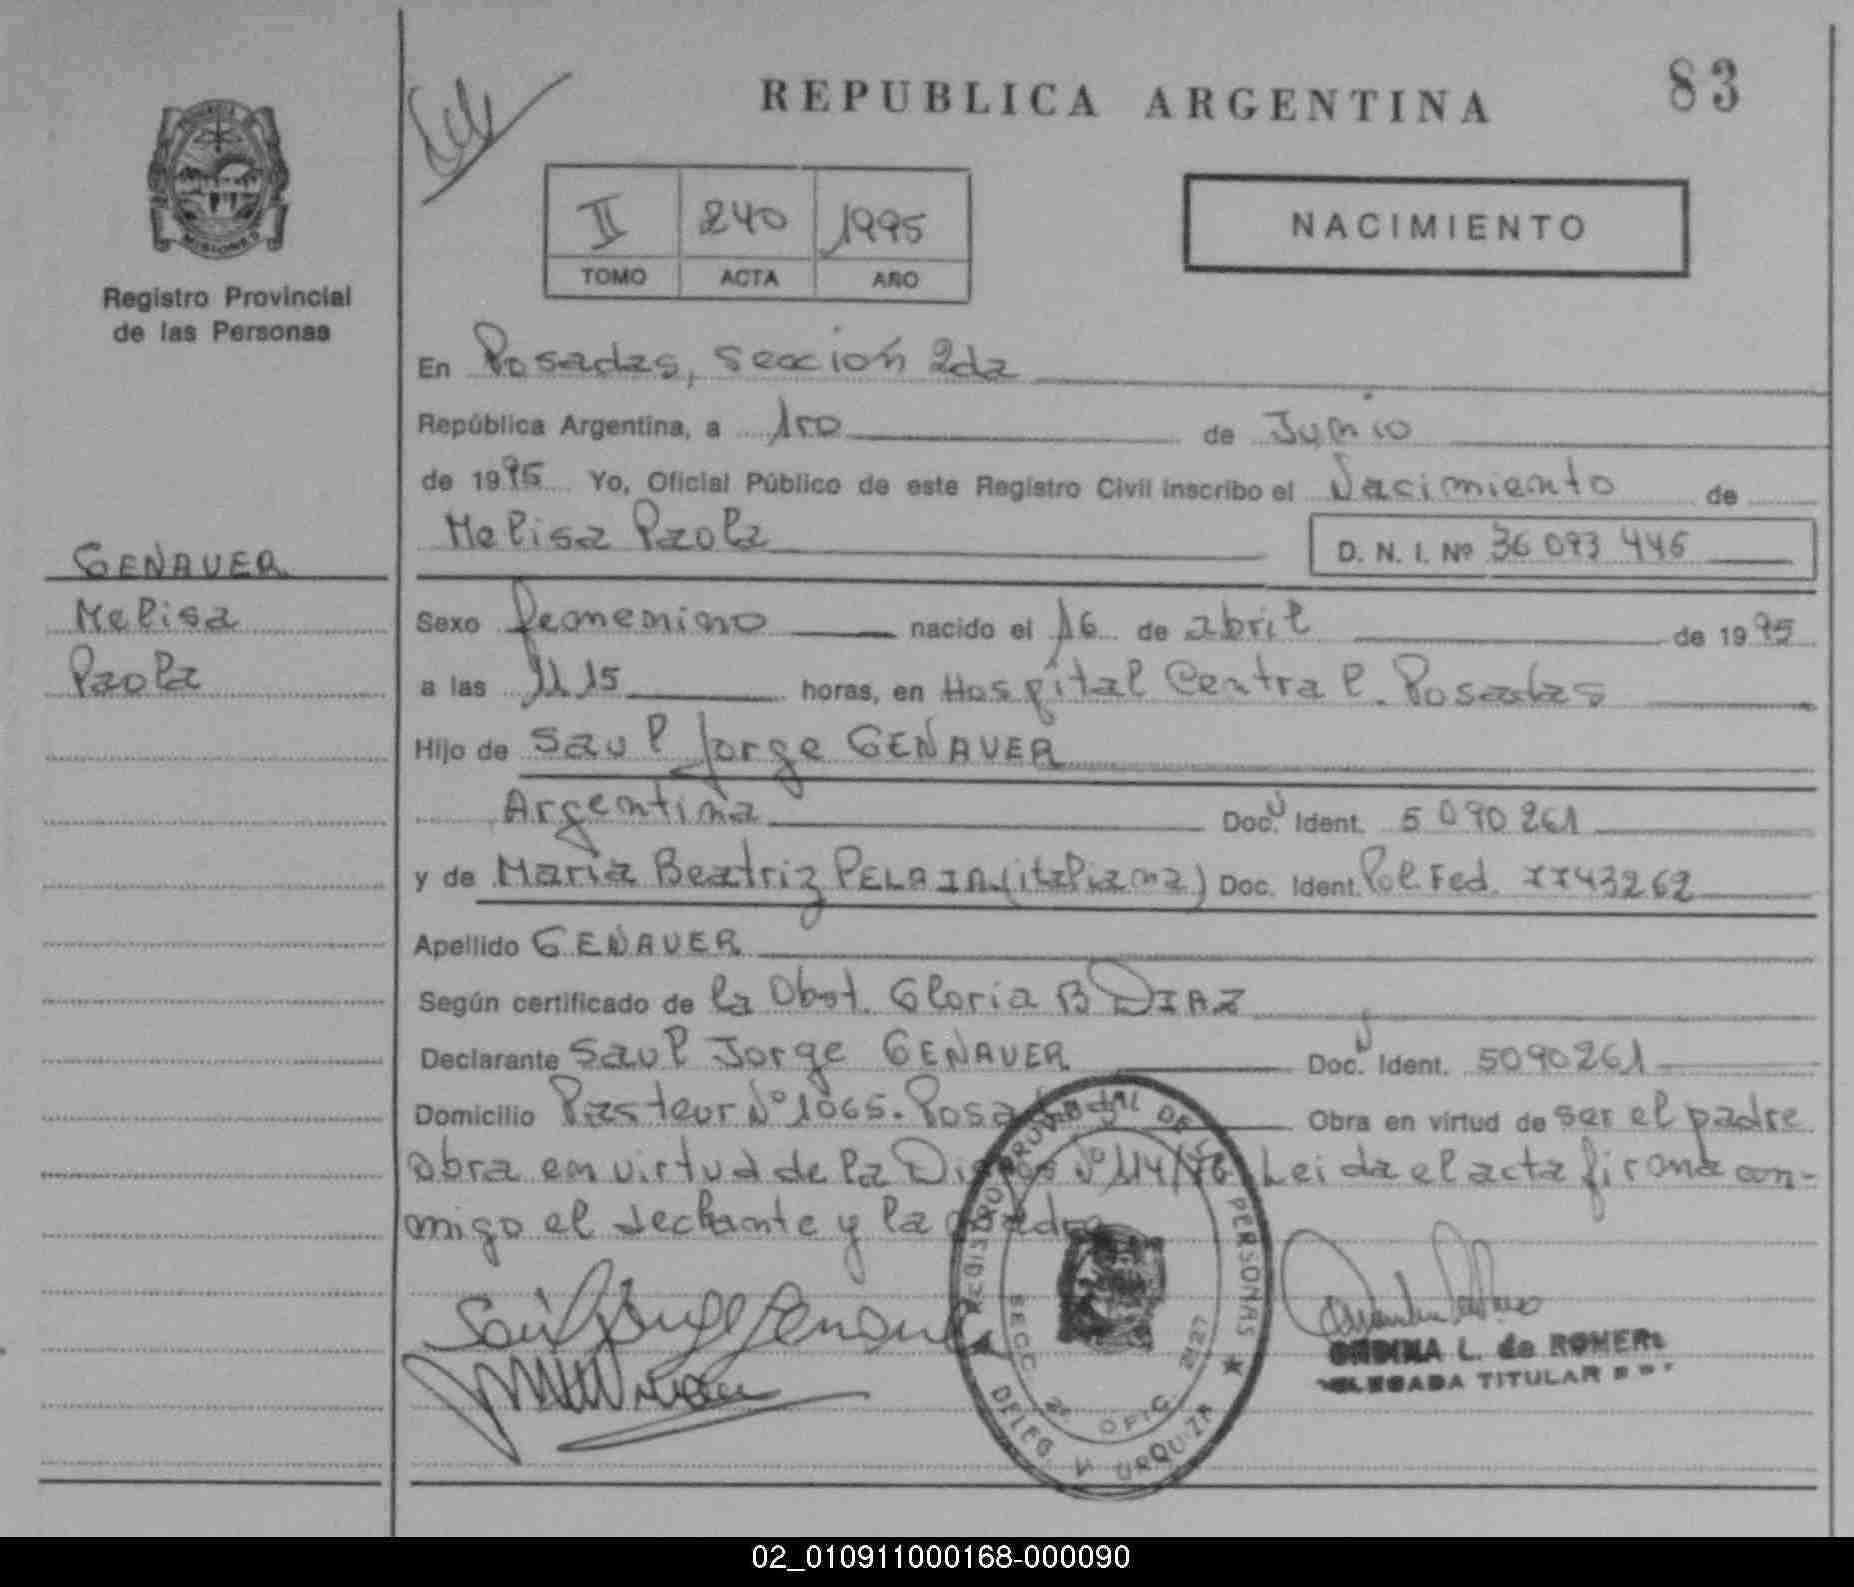 REPUBLICA ARGENTINA
83
MISIONES
Registro Provincial
de las Personas
II 240 1995
TOMO ACTA AÑO
NACIMIENTO
En Posadas, sección 2da
República Argentina, a 1ro de Junio
de 1995 Yo, Oficial Público de este Registro Civil inscribo el Nacimiento de
Melisa Paola
D. N. I. Nº 36 093 446
GENAUER
Melisa
Paola
Sexo femenino nacido el 16 de abril de 1995
a las 11 15 horas, en Hospital Central. Posadas
Hijo de Saul Jorge GENAUER
Argentina Doc. Ident. 5 090 261
y de Maria Beatriz PELAIA (italiana) Doc. Ident. Pol. Fed.
Apellido GENAUER
Según certificado de la Obst. Gloria B DIAZ
Declarante Saul Jorge GENAUER Doc. Ident. 5090261
Domicilio Pasteur Nº 1065. Posadas Obra en virtud de ser el padre
obra en virtud de la Nº 114/ Leida el acta firma con-
migo el y la madre
REGISTRO PROVINCIAL DE LAS PERSONAS
SECC. 2º OFIC. 2127
DELEG. M URQUIZA
L. de ROMER
TITULAR
02_010911000168-000090